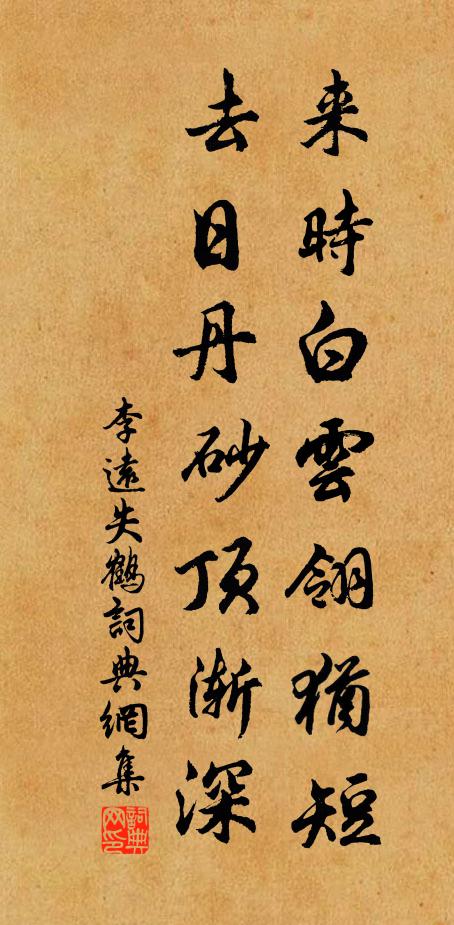 来時白雲翎猶短
去日丹砂頂漸深
李遠失鶴詞典網集
詞典网印